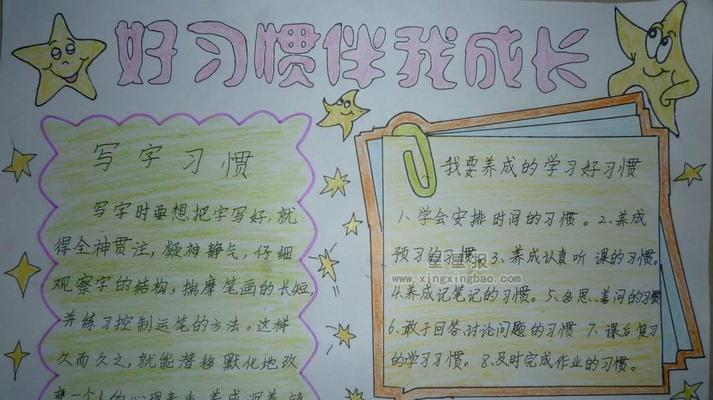 好习惯伴我成长
写字习惯
写字时要想把字写好,就
得全神贯注,凝神静气,仔细
观察字的结构,揣摩笔画的长短,
并练习控制运笔的方法。这样
久而久之,就能潜移默化地改
变一个人的心理素质,养成沉着、镇
我要养成的学习好习惯
1、学会安排时间的习惯。2、养成
预习的习惯。3、养成认真听课的习惯。
4、养成记笔记的习惯。5、多思、善问的习惯
6、敢于回答、讨论问题的习惯 7、课后复习
的学习习惯。8、及时完成作业的习惯。
星星报
www.xingxingbao.com